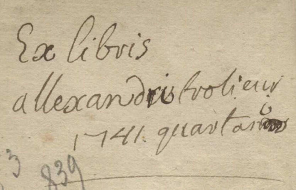 Ex libris
allexandri trolieur
1741. quartanus
3
839